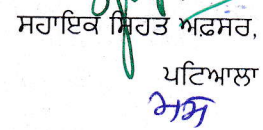 ਸਹਾਇਕ ਸਿਹਤ ਅਫ਼ਸਰ,
ਪਟਿਆਲਾ